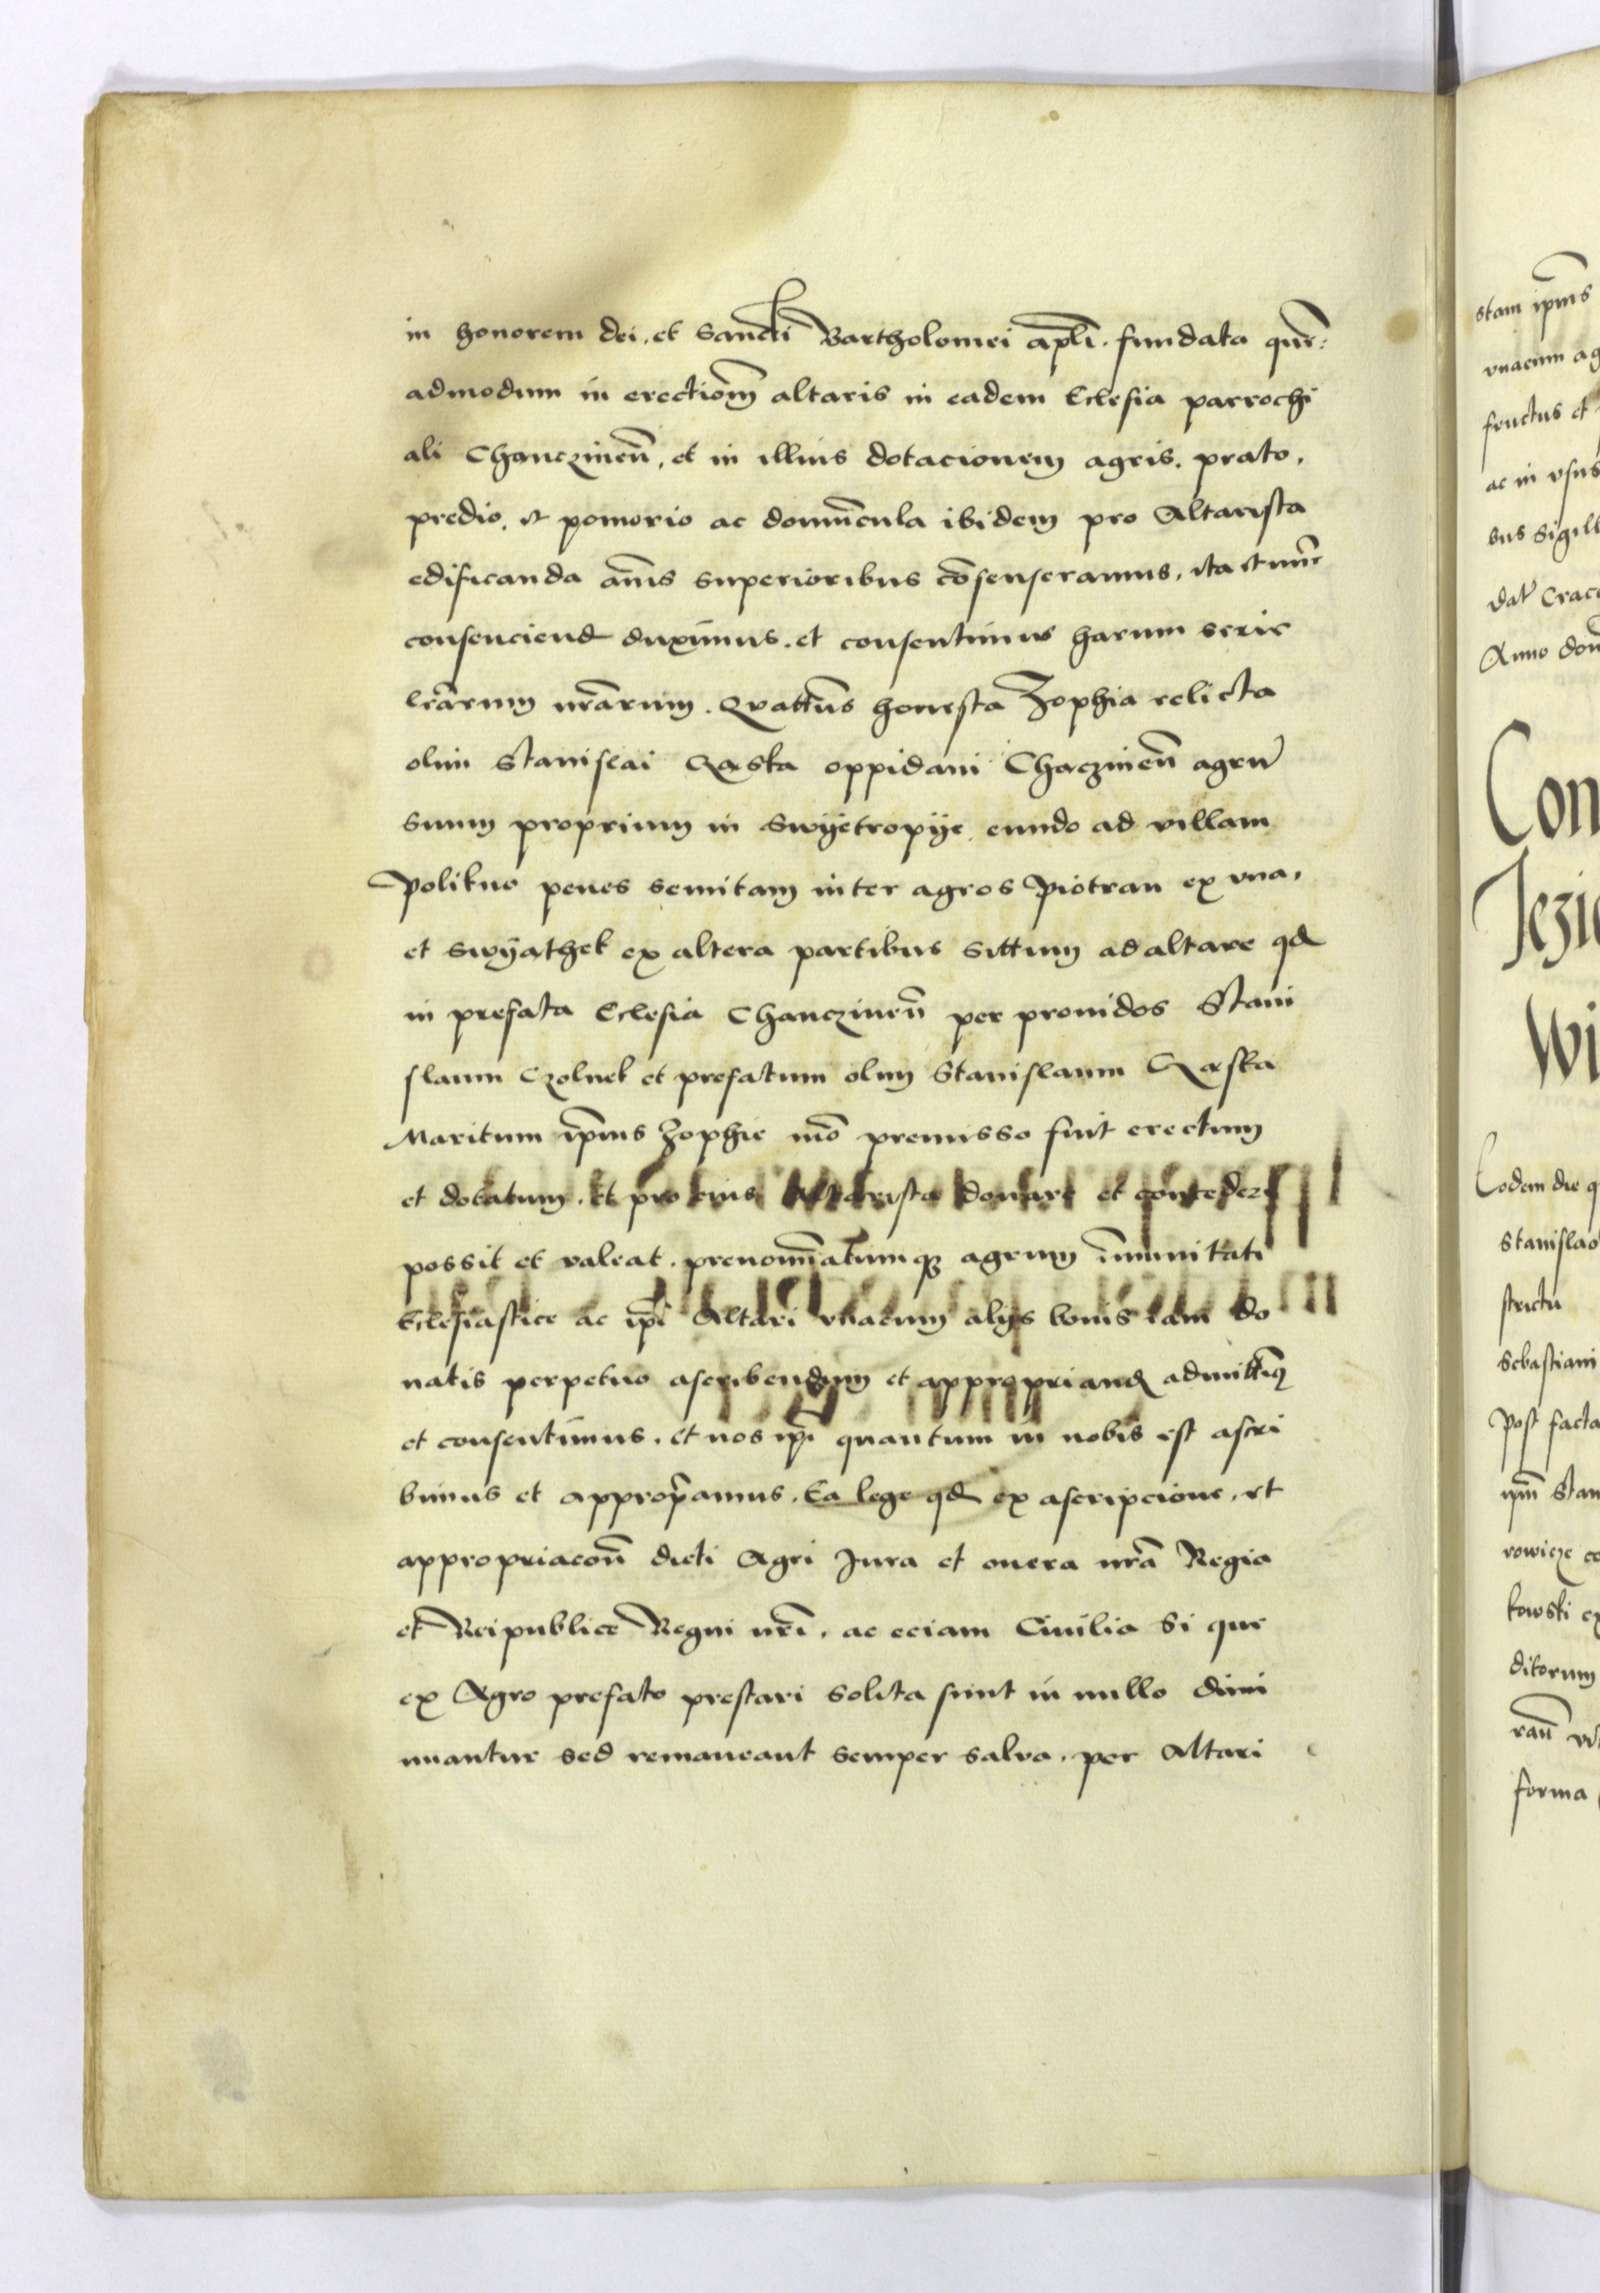 in honorem dei. et Sancti Bartholomei apli. fundata que͂:
admodum in erectiom̄ altaris in eadem Eclesia parrochi
ali Chanczinen̄. et in illius dotacionem agris. prato.
predio. et pomorio ac domu͂cula ibidem pro Altarista
edificanda an̄is superioribus co͂senseramus. ita et nu͂c
consenciend duximus. et consentimus harum serie
lr͂arum nr͂arum. Quatt͂us honesta Zophia relicta
olim Stanislai Qaska oppidani Chaczinen̄ agru͂
suum proprium in Swyetropye eundo ad villam
Polikno penes semitam inter agros Piotran ex vna.
et Swyathek ex altera partibus sittum ad altare qd
in prefata Eclesia Chanczinen̄ per prouidos Stani
slaum Czolnek et prefatum olim Stanislaum Qaska
Maritum ip͂ius Zophie mo͂ premisso fuit erectum
et dotatum. et pro eius Altarista donare et concedere
possit et valeat. prenomi͂atumq3 agrum i͂munitati
Eclesiastice ac ip͂i Altari vnacum alys bonis iam do
natis perpetuo ascribendum et appropriand admittim9
et consentimus. et nos ip͂i quantum in nobis est ascri
bimus et appropr͂amus. Ea lege qd ex ascripcione. et
appropriacon̄ dicti Agri Jura et onera nr͂a Regia
et Reipublice Regni nr͂i. ac eciam Ciuilia Si que
ex Agro prefato prestari solita sunt in nullo dimi
nuantur sed remaneant semper salva. per Altari
stam ip͂ius
vnacum ag
fructus et
ac in vsus
bus Sigill
Dat͂ Craco
Anno dom
Con
Jezie
Wi
Eodem die q
Stanislao
strictu
Sebastiani
Post facta
ip͂m Stan
rowicze co
kowski ex
ditorum
forma